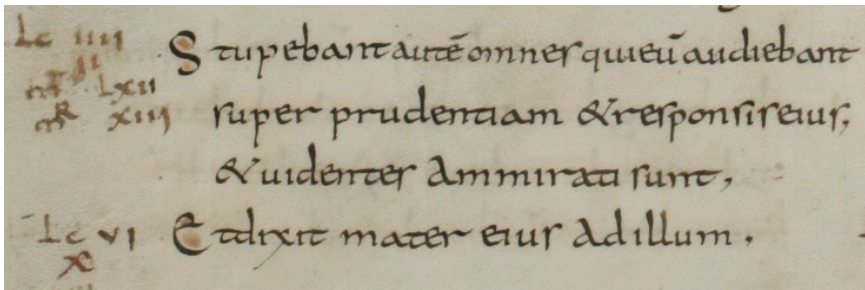 Lc iiii
II
mt LXII
mr XIII
Stupebant autē omnes qui eū audiebant
super prudentiam & responsis eius;
& uidentes Ammirati sunt,
Lc VI
X
Et dixit mater eius Ad illum.